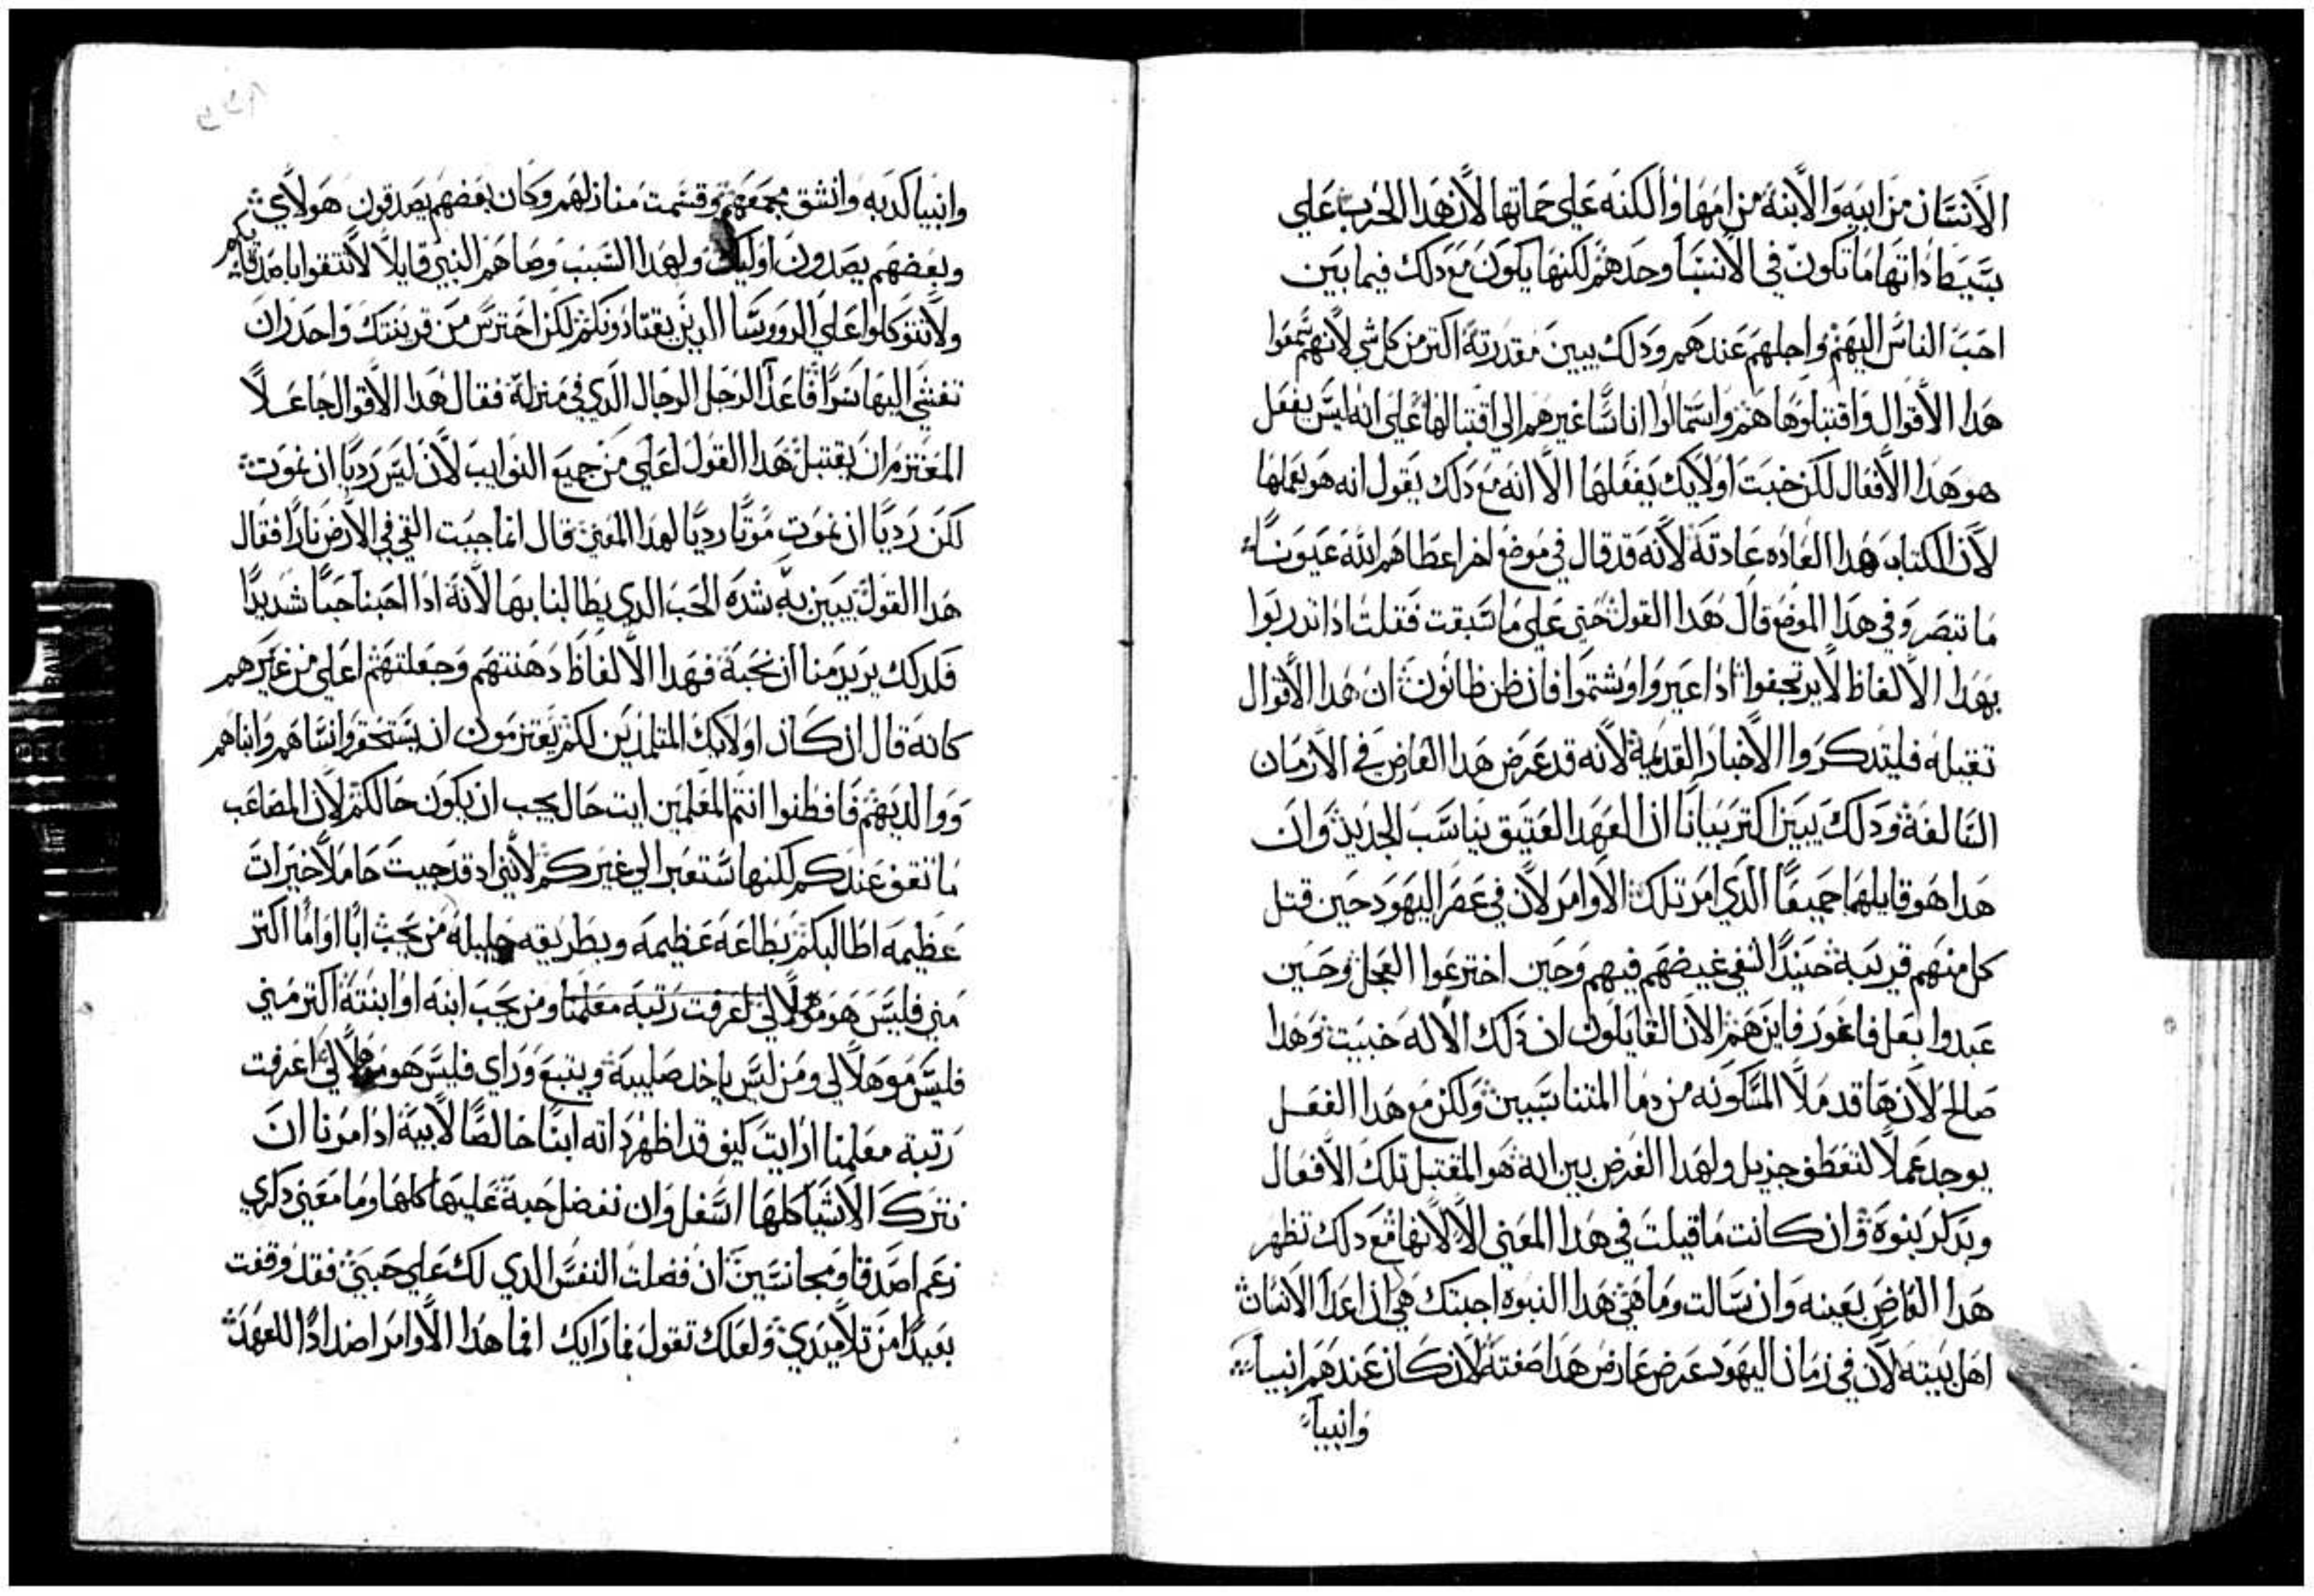 الانسان من ابيه والابنة من امها والكنه علي حماتها لان هدا الحرب علي
بسيط داتها ما تكون في الانسبا وحدهم لكنها يكون مع دلك فيما بين
احب الناس اليهم واجلهم عندهم ودلك يبين مقدرته اكتر من كل شي لانهم سمعوا
هدا الاقوال واقتبلوها هم واستمالوا اناسًا غيرهم الي اقتبالها علي انه ليس يفعل
هو هدا الافعال لكن خبت اولايك يفعلها الا انه مع دلك يقول انه هو يعملها
لان الكتاب هدا العاده عادته لانه قد قال في موضع اخر اعطاهم الله عيونًا
ما تبصر وفي هدا الموضع قال هدا القول حتي علي ما سبقت فقلت ادا تدربوا
بهدا الالفاظ لا يرتجفوا ادا عيروا او شتموا فان ظن ظانون ان هدا الاقوال
تقيله فليتدكروا الاخبار القديمة لانه قد عرض هدا العارض في الازمان
السالفة ودلك يبين اكتر بيانًا ان العهد العتيق يناسب الجديد وان
هدا هو قايلهما جميعًا الدي امر تلك الاوامر لان في عصر اليهود حين قتل
كل منهم قريبه حينيدًا انتفي غيضهم فيهم وحين اخترعوا العجل وحين
عبدوا بعل فاغور فاين هم الان القايلون ان دلك الاله خبيت وهدا
صالح لان ها قد ملا المسكونه من دما المتناسبين ولكن مع هدا الفعل
يوجد عملا لتعطف جزيل ولهدا الغرض بين انه هو المقتبل تلك الافعال
وبدكر بنوة وان كانت ما قيلت في هدا المعني الا لانها مع دلك تظهر
هدا العارض بعينه وان سالت وما هي هدا النبوه اجبتك هي ان اعدا الانسان
اهل بيته لان في زمان اليهود عرض عارض هدا صفته لان كان عندهم انبيا
وانبيا
وانبيا كدبه وانشق مجمعهم وقسمت منازلهم وكان بعضهم يصدقون هولاي
وبعضهم يصدون اوليك ولهدا السبب وصاهم النبي قايلا لا تتقوا باصدقايكم
ولا تتوكلوا علي الرووسا الدين يقتادونكم لكن احترس من قرينتك واحدر ان
تفشي اليها سرًا فاعدا الرجل الرجال الدي في منزله فقال هدا الاقوال جاعلًا
المعتزم ان يقتبل هدا القول اعلي من جميع النوايب لان ليس رديًا ان نموت
لكن رديًا ان نموت موتًا رديًا لهدا المعني قال انما جيت القي في الارض نارًا فقال
هدا القول يبين به شده الحب الدي يطالبنا بها لانه ادا احبنا حبًا شديدًا
فلدلك يريد منا ان نحبه فهدا الالفاظ دهنتهم وجعلتهم اعلي من غيرهم
كانه قال ان كان اولايك المتلمدين لكم يعتزمون ان يستحقروا نساهم وابناهم
ووالديهم فافطنوا انتم المعلمين ايت حال يجب ان يكون حالكم لان المصاعب
ما تقف عندكم لكنها ستعبر الي غيركم لانني اد قد جيت حاملا خيرات
عظيمه اطالبكم بطاعه عظيمه وبطريقه جليله من يحب ابًا او امًا اكتر
مني فليس هو موهلا لي اعرفت رتبه معلمنا ومن يحب ابنه او ابنته اكتر مني
فليس موهلا لي ومن ليس ياخد صليبه ويتبع وراي فليس هو موهلا لي اعرفت
رتبة معلمنا ارايت كيف قد اظهر داته ابنًا خالصًا لابيه ادا مرنا ان
نترك الاشيا كلها اسفل وان نفضل حبه عليها كلها وما معني دكري
زعم اصدقا ومجانسين ان فضلت النفس الدي لك علي حبي فقد وقفت
بعيدًا من تلاميدي ولعلك تقول فما رايك افما هدا الاوامر اضدادًا للعهد